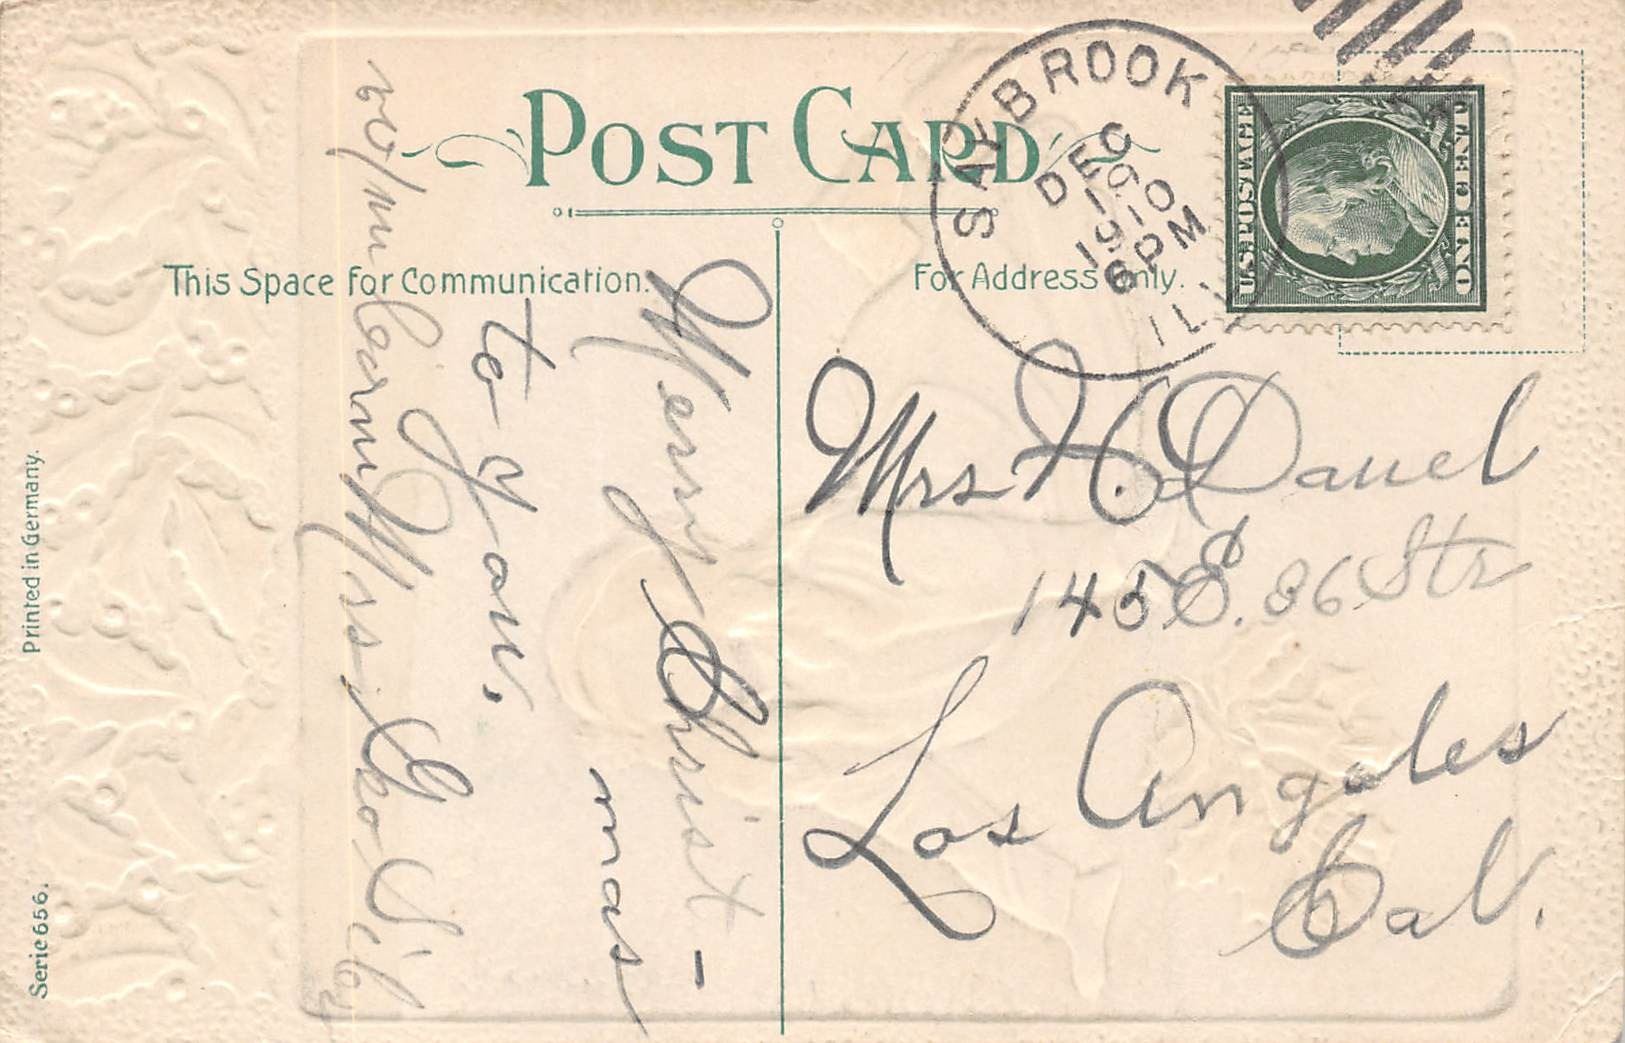 POST CARD
This Space for Communication.
For Address Only.
SAYBROOK
DEC
19
1910
6 PM
ILL.
U.S. POSTAGE
ONE CENT
Merry Christ-
mas
to you,
Wm
Mrs. Geo Sibley
Mrs H. Danel
145 E. 36 Str
Los Angales
Cal.
Printed in Germany.
Serie 656.